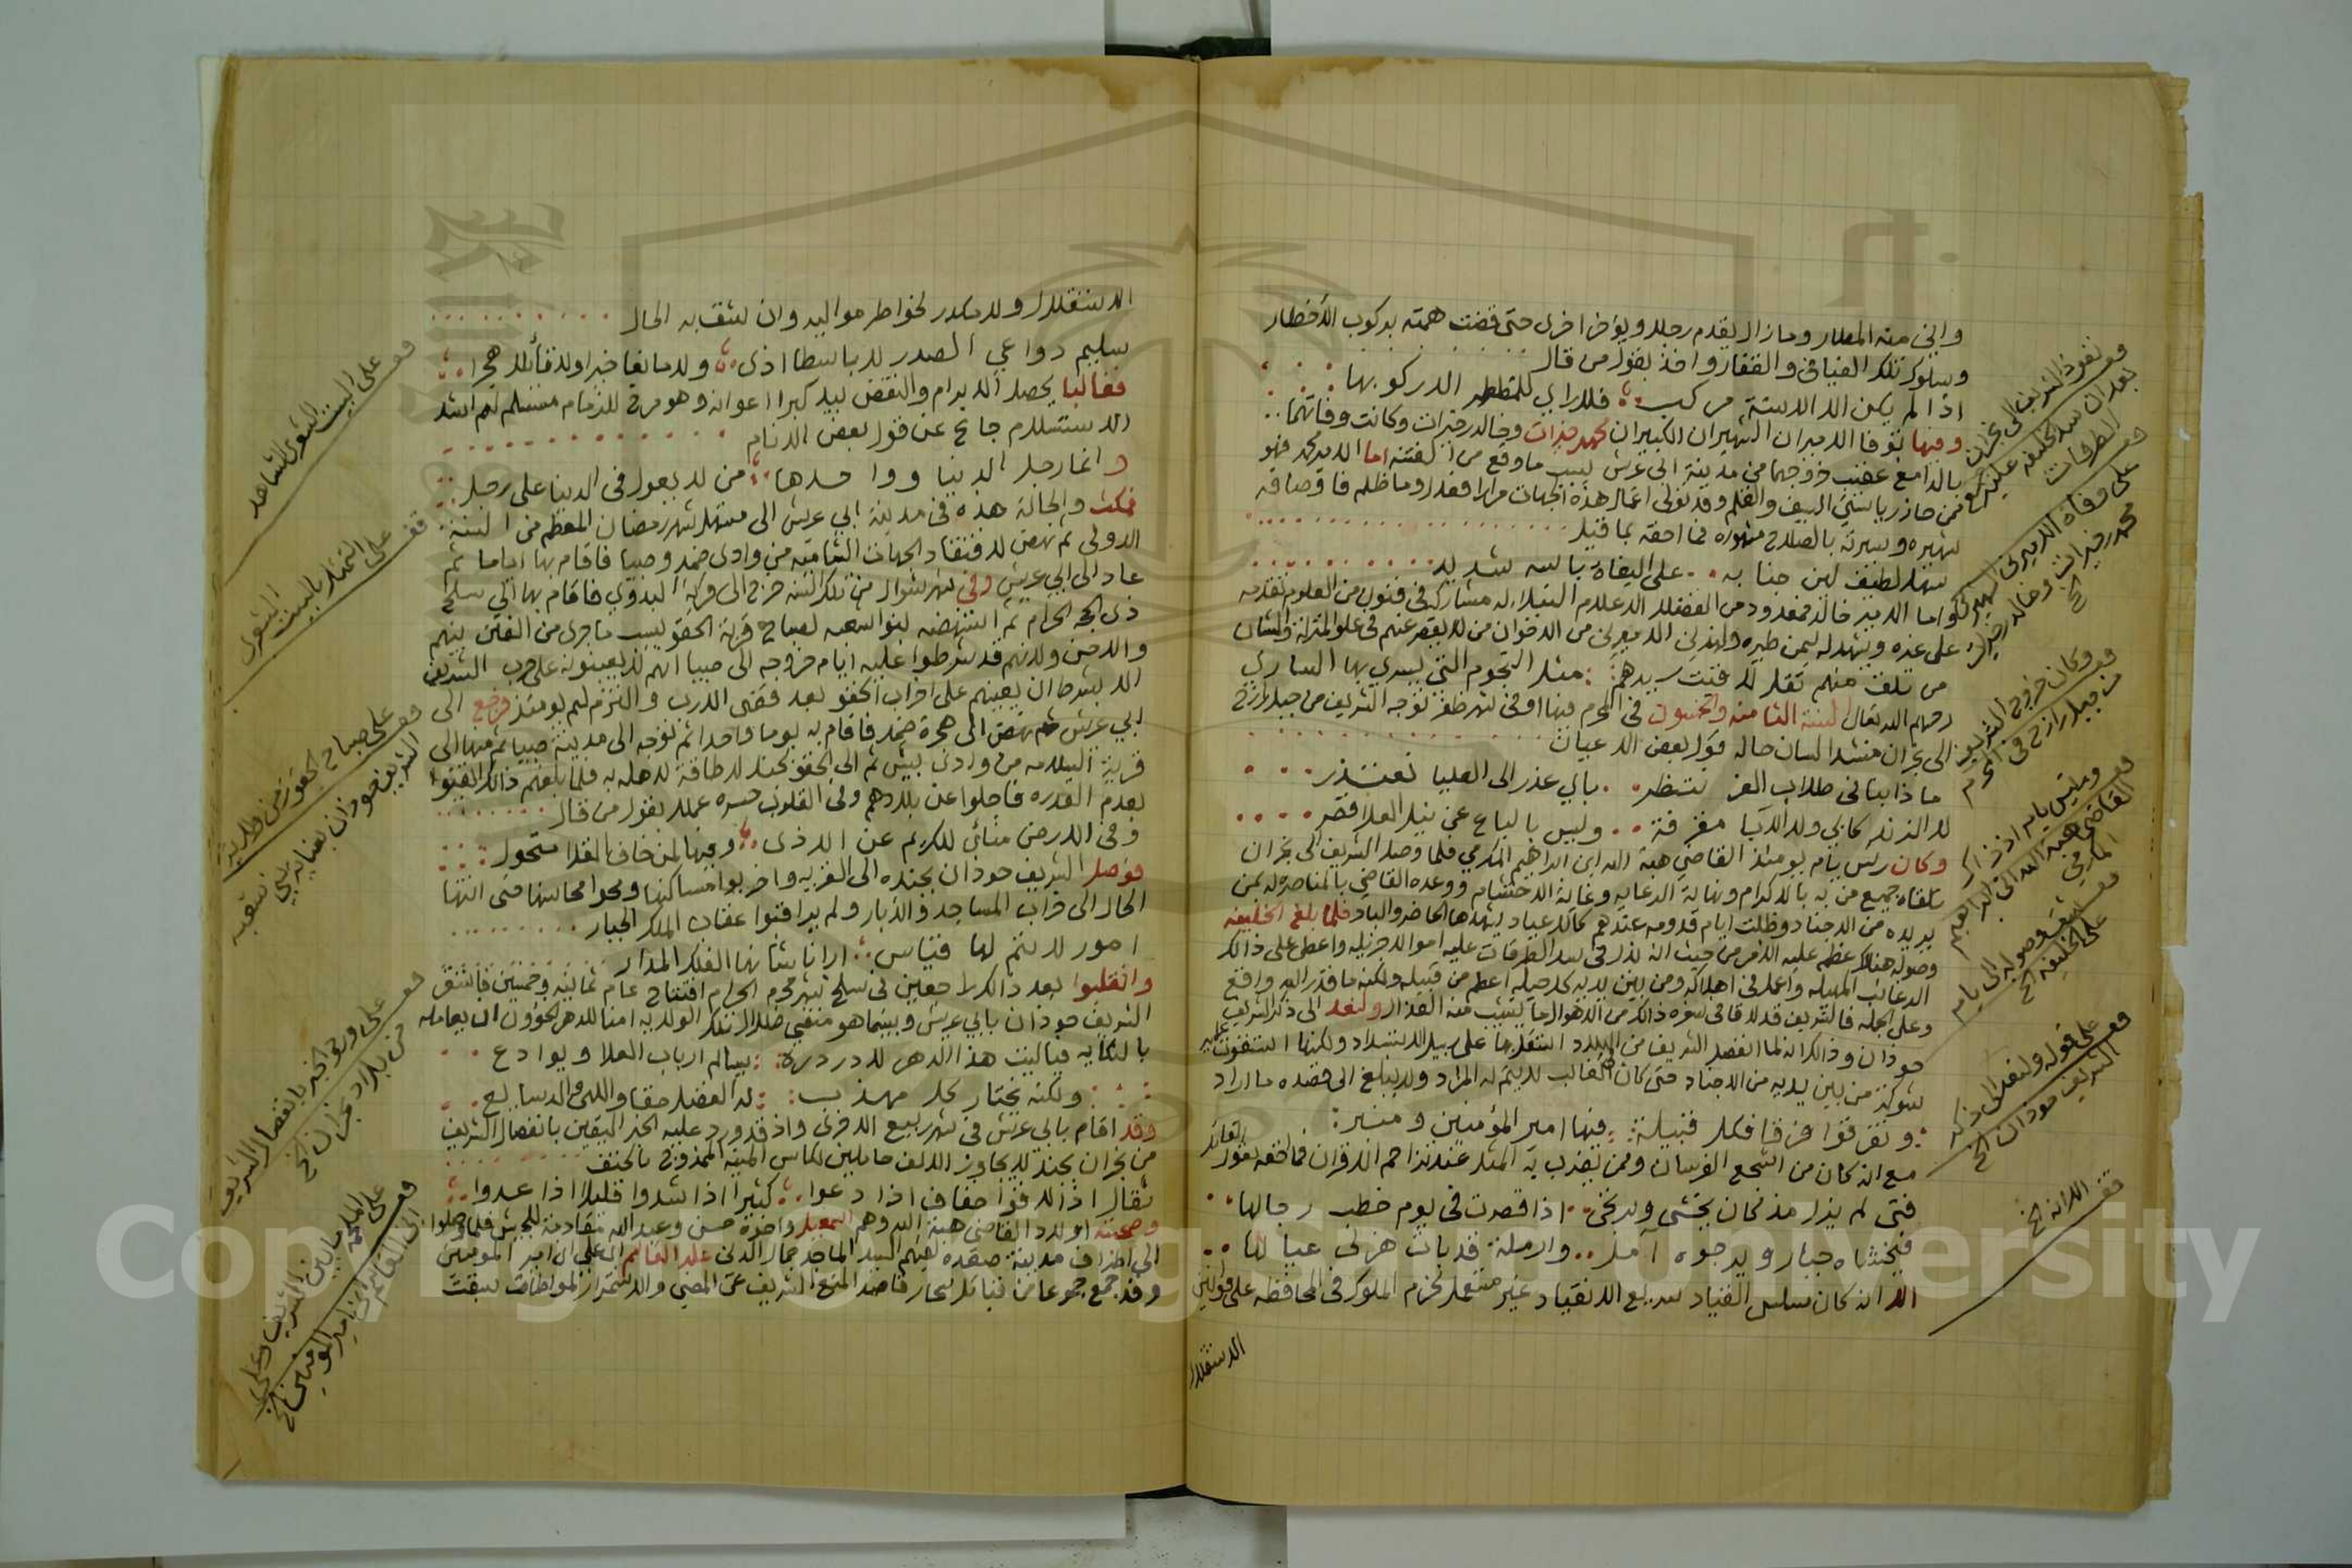 واين منه المطار وما زال يقدم رجلا ويؤخر اخرى حتى قضت همته بركوب الأخطار
وسلوك تلك الفيافي والقفار واخذ بقول من قال
اذا لم يكن الا الاسنة مركب فلا راي للمضطر الا ركوبها
وفيها توفا الاميران الشهيران الكبيران محمد خيرات وخالد خيرات وكانت وفاتهما
عقيب خروجهما من مدينة ابي عريش بسبب ما وقع من الفتنه اما الامير محمد فهو
ممن حاز رياستي السيف والقلم وقد تولى اعمال هذه الجهات مرارا فعدل وما ظلم فاوصافه
شهيره وسيرته بالصلاح مشهوره فما احقه بما قيل
سهل لطيف لين جنابه على البغاة باسه شديد
واما الامير خالد فمعدود من الفضلاء الاعلام النبلاء له مشاركه في فنون من العلوم
من تلق منهم تقل لاقيت سيدهم مثل النجوم التي يسري بها الساري
رحمهم الله تعالى السنة الثامنه والخمسون في المحرم فيها او في شهر ظفر توجه الشريف من جبل رازح
الى نجران منشدا لسان حاله قول بعض الاعيان
ماذا بنا في طلاب العز ننتظر باي عذر الى العليا نعتذر
لا الزند كابي ولا الآبا مقرفة وليس بالباع عن نيل العلا قصر
وكان رئس يام يومئذ القاضي هبة الله ابن ابراهيم المكرمي فلما وصل الشريف الى نجران
تلقاه جميع من به بالاكرام ونهاية الرعايه وغاية الاحتشام ووعده القاضي بالمناصره له بمن
يريده من الاجناد وظلت ايام قدومه عندهم كالاعياد يشهدها الحاضر والباد فلما بلغ الخليفه
وصوله هنالك عظم عليه الامر من حيث انه بذل في سد الطرقات عليه اموالا جزيله واعطى على ذالك
الرغائب المهيله واعمل في اهلاكه ومن بين يديه كل حيله اعظم من قبيله ولكنه ما قدر الله واقع
وعلى الجمله فالشريف قد لاقا في سفره ذالك من الاهوال ما يشيب منه القذال ولنعد الى ذكر الشريف
حوذان وذالك انه لما انفصل الشريف من البلاد استقل بها على سبيل الاستبداد ولكنها انتفضت عليه
شوكة من بين يديه من الاجناد حتى كان في الغالب لا يتم له المراد ولا يبلغ الى قصده ما اراد
وتفرقوا فرقا فكل قبيلة فيها امير المؤمنين ومنبر
مع انه كان من اشجع الفرسان وممن يضرب به المثل عند تزاحم الاقران فما احقه بقول القائل
فتى لم يزل مذ كان يخشى ويرتجى اذا قصرت في يوم خطب رجالها
فيخشاه جبار ويرجوه آمل وارملة قد بات هزلى عيالها
الا انه كان سلس القياد سريع الانقياد غير مستعمل لحزم الملوك في المحافظه على قوانين
الاستقلال
قف نفوذ الشريف الى نجران
بعد ان سد الخليفه عليه
الطرقات
قف على وفاة الاميرين الشهيرين
محمد خيرات وخالد خيرات
الخ
قف وكان خروج الشريف
من جبل رازح في المحرم
قف ورئيس يام اذ ذاك
القاضي هبة الله ابن ابراهيم
المكرمي
قف شق وصوله الى يام
على الخليفه الخ
قف على قوله ولنعد الى ذكر
الشريف حوذان الخ
قف الا انه الخ
الاستقلال ولا مكدر لخواطر مواليه وان لشقبه الحال
سليم دواعي الصدر لا باسطا اذى ولا مانعا خيرا ولا قائلا هجرا
فغالبا يحصل الابرام والنقض بيد كبرا اعوانه وهو مرخ للزمام مستسلم لهم اشد
الاستسلام جانح عن قول بعض الانام
وانما رجل الدنيا وواحدها من لا يعول في الدنيا على رجل
فمكث والحالة هذه في مدينة ابي عريش الى مستهل شهر رمضان المعظم من السنة
الاولى ثم نهض لافتقاد الجهات الشاميه من وادي ضمد وصبيا فاقام بها اياما ثم
عاد الى ابي عريش وفي شهر شوال من تلك السنه خرج الى قرية البدوي فاقام بها الى سلخ
ذي الحجه الحرام ثم استنهضه بنوا شعبه لصباح قرية الحقو بسبب ما جرى من الفتن بينهم
والاحن ولانهم قد شرطوا عليه ايام خروجه الى صبيا انهم لا يعينونه على حرب الشريف
الا بشرط ان يعينهم على اخراب الحقو بعد قضى الارب والتزم لهم يومئذ فرجع الى
ابي عريش ثم نهض الى هجرة ضمد فاقام به يوما واحدا ثم توجه الى مدينة صبيا ثم منها الى
قرية السلامه من وادي بيش ثم الى الحقو بجند لا طاقة لاهله به فلما بلغهم ذالك ايقنوا
بعدم القدره فاجلوا عن بلادهم وفي القلوب حسره عملا بقول من قال
وفي الارض منأى للكريم عن الاذى وفيها لمن خاف القلا متحول
فوصل الشريف حوذان بجنده الى القريه واخربوا مساكنها ومحوا محاسنها حتى انتها
الحال الى خراب المساجد والابار ولم يراقبوا عقاب الملك الجبار
امور لا يتم لها قياس ارانا شانها الفلك المدار
وانقلبوا بعد ذالك راجعين في سلخ شهر محرم الحرام افتتاح عام ثمانية وخمسين فاستقر
الشريف حوذان بابي عريش وبينما هو متفي ظلال تلك الولايه امنا للدهر الخؤون ان يعامله
بالنكايه فياليت هذا الدهر لا در دره يسالم ارباب العلا ويوادع
ولكنه يختار كل مهذب له الفضل حقا واللهى والدسايع
وقد اقام بابي عريش في شهر ربيع الاخرى واذ قد ورد عليه الخبر اليقين بانفصال الشريف
من نجران بجند لا يجاوز الالف حاملين لكاس المنية الممذوج بالحتف
ثقال اذا لاقوا خفاف اذا دعوا كثير اذا شدوا قليل اذا عدوا
وصحبته اولاد القاضي هبة الله وهم اسمعيل واخوة حسن وعبدالله مقادمة للجيش فلما وصلوا
الى اطراف مدينة صعده لقيهم السيد الماجد جمال الدين علي القاسم ابن علي ابن امير المومنين
وقد جمع جموعا من قبائل سحار قاصدا لمنع الشريف عن المضي والاستمرار لمواطات سبقت
قف على البيت الشعري الشاهد
قف على التمثل بالبيت الشعري
قف على صباح الحقو من ولاية
الشريف حوذان بعناية بني شعبه
قف على ورود الخبر بانفصال الشريف
من بلاد نجران الخ
قف على الملحمة بين الشريف وعلي
ابن القاسم ابن امير المومنين الخ
Copyright © King Saud University